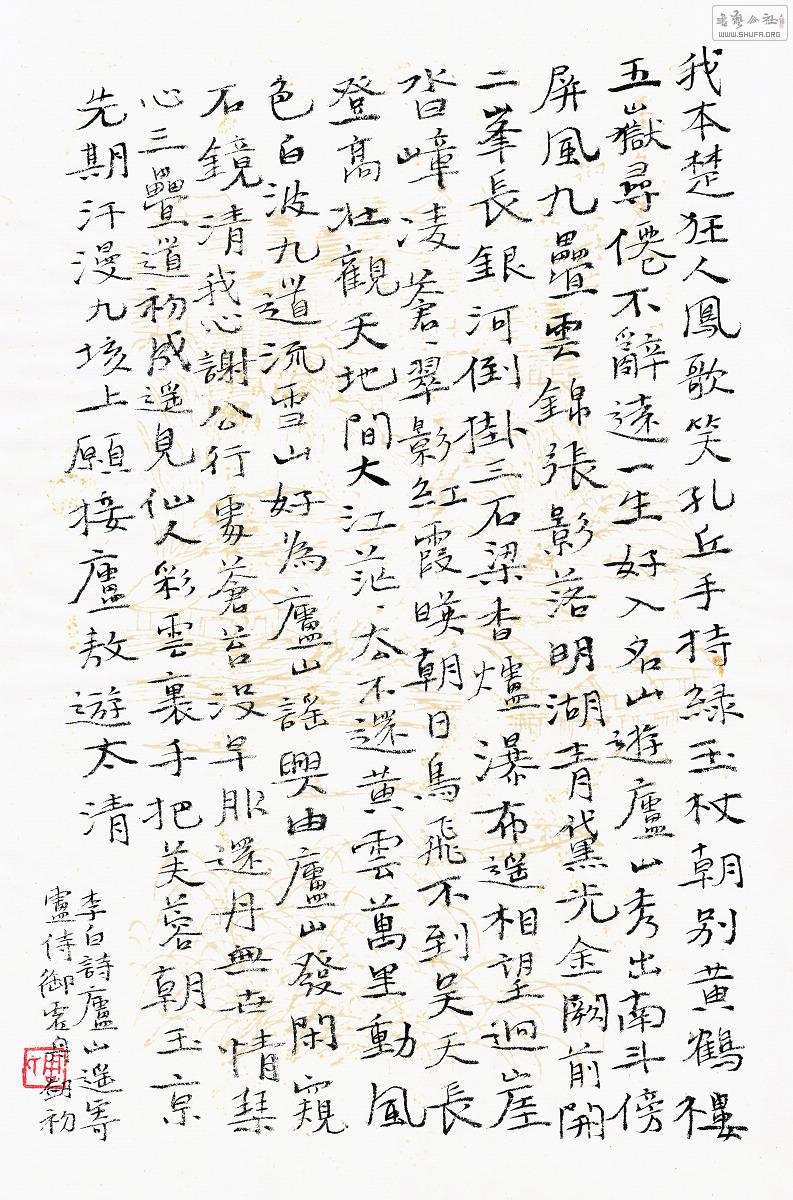 我本楚狂人鳳歌笑孔丘手持綠玉杖朝別黃鶴樓
五嶽尋僊不辭遠一生好入名山遊廬山秀出南斗傍
屏風九疊雲錦張影落明湖青黛光金闕前開
二峯長銀河倒掛三石梁香爐瀑布遥相望迴崖
沓嶂凌蒼蒼翠影紅霞暎朝日鳥飛不到吴天長
登高壯觀天地間大江茫茫去不還黄雲萬里動風
色白波九道流雪山好為廬山謠興由廬山發閑窺
石鏡清我心謝公行處蒼苔没早服還丹無世情琴
心三疊道初成遥見仙人彩雲裏手把芙蓉朝玉京
先期汗漫九垓上願接廬敖遊太清
李白詩廬山遥寄
盧侍御虚舟
書藝公社
WWW.SHUFA.ORG